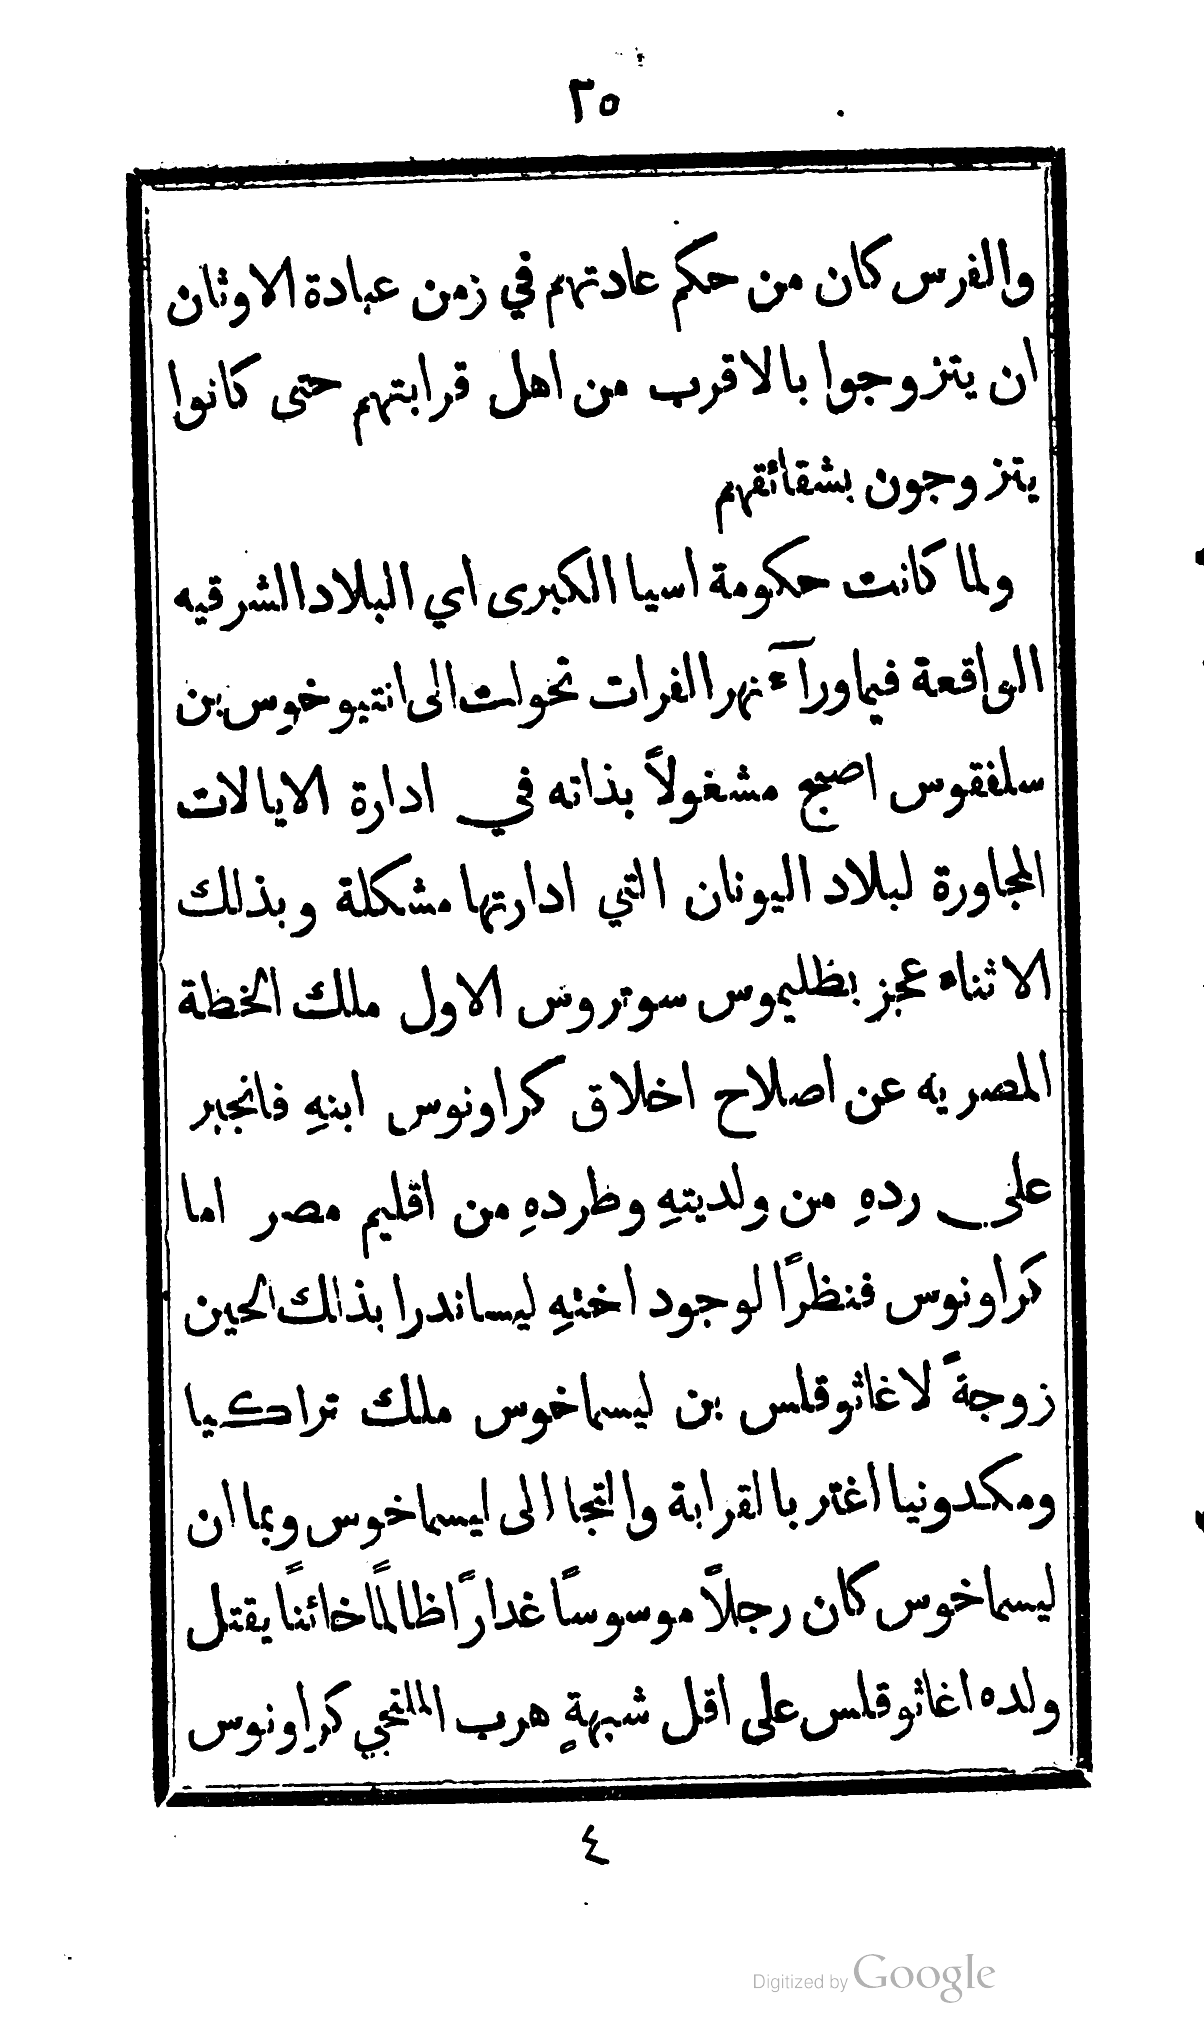 ٢٥
والفرس كان من حكم عادتهم في زمن عبادة الاوثان
ان يتزوجوا بالاقرب من اهل قرابتهم حتى كانوا
يتزوجون بشقائقهم
ولما كانت حكومة اسيا الكبرى اي البلاد الشرقيه
الواقعة فيماورآء نهر الفرات تحولت الى انتيوخوس بن
سلفقوس اصبح مشغولاً بذاته في ادارة الايالات
المجاورة لبلاد اليونان التي ادارتها مشكلة وبذلك
الاثناء عجز بظليموس سوتروس الاول ملك الخظة
المصريه عن اصلاح اخلاق كراونوس ابنهِ فانجبر
على ردهِ من ولديتهِ وظردهِ من اقليم مصر اما
كراونوس فنظرًا لوجود اختهِ ليساندرا بذلك الحين
زوجةً لاغاثوقلس بن ليسماخوس ملك تراكيا
ومكدونيا اغتر بالقرابة والتجا الى ليسماخوس وبما ان
ليسماخوس كان رجلاً موسوسًا غدارًا ظالمًا خائنًا يقتل
ولده اغاثوقلس على اقل شبهةٍ هرب الملتجي كراونوس
٤
Digitized by Google